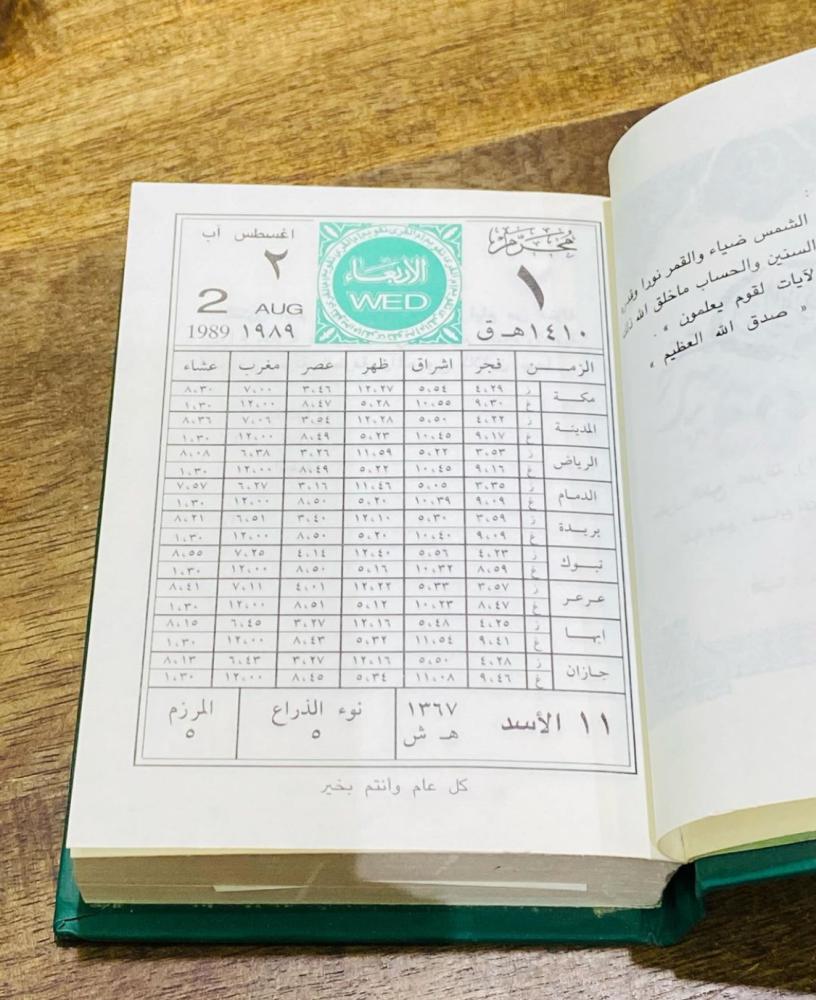 محرم
١
١٤١٠هـ ق
تقويم أم القرى
الأربعاء
WED
اغسطس آب
٢
2 AUG
1989 ١٩٨٩
الزمن فجر اشراق ظهر عصر مغرب عشاء
مكة ز ٤،٢٩ ٥،٥٤ ١٢،٢٧ ٣،٤٦ ٧،٠٠ ٨،٣٠
غ ٩،٣٠ ١٠،٥٥ ٥،٢٨ ٨،٤٧ ١٢،٠٠ ١،٣٠
المدينة ز ٤،٢٢ ٥،٥٠ ١٢،٢٨ ٣،٥٤ ٧،٠٦ ٨،٣٦
غ ٩،١٧ ١٠،٤٥ ٥،٢٣ ٨،٤٩ ١٢،٠٠ ١،٣٠
الرياض ز ٣،٥٣ ٥،٢٢ ١١،٥٩ ٣،٢٦ ٦،٣٨ ٨،٠٨
غ ٩،١٦ ١٠،٤٥ ٥،٢٢ ٨،٤٩ ١٢،٠٠ ١،٣٠
الدمام ز ٣،٣٥ ٥،٠٥ ١١،٤٦ ٣،١٦ ٦،٢٧ ٧،٥٧
غ ٩،٠٩ ١٠،٣٩ ٥،٢٠ ٨،٥٠ ١٢،٠٠ ١،٣٠
بريدة ز ٣،٥٩ ٥،٣٠ ١٢،١٠ ٣،٤٠ ٦،٥١ ٨،٢١
غ ٩،٠٩ ١٠،٤٠ ٥،٢٠ ٨،٥٠ ١٢،٠٠ ١،٣٠
تبوك ز ٤،٢٣ ٥،٥٦ ١٢،٤٠ ٤،١٤ ٧،٢٥ ٨،٥٥
غ ٨،٥٩ ١٠،٣٢ ٥،١٦ ٨،٥٠ ١٢،٠٠ ١،٣٠
عرعر ز ٣،٥٧ ٥،٣٣ ١٢،٢٢ ٤،٠١ ٧،١١ ٨،٤١
غ ٨،٤٧ ١٠،٢٣ ٥،١٢ ٨،٥١ ١٢،٠٠ ١،٣٠
ابها ز ٤،٢٥ ٥،٤٨ ١٢،١٦ ٣،٢٧ ٦،٤٥ ٨،١٥
غ ٩،٤١ ١١،٥٤ ٥،٣٢ ٨،٤٣ ١٢،٠٠ ١،٣٠
جازان ز ٤،٢٨ ٥،٥٠ ١٢،١٦ ٣،٢٧ ٦،٤٣ ٨،١٣
غ ٩،٤٦ ١١،٠٨ ٥،٣٤ ٨،٤٥ ١٢،٠٠ ١،٣٠
١١ الأسد ١٣٦٧ هـ ش
نوء الذراع ٥
المرزم ٥
كل عام وأنتم بخير
الشمس ضياء والقمر نورا
السنين والحساب ماخلق الله
لآيات لقوم يعلمون » .
« صدق الله العظيم »